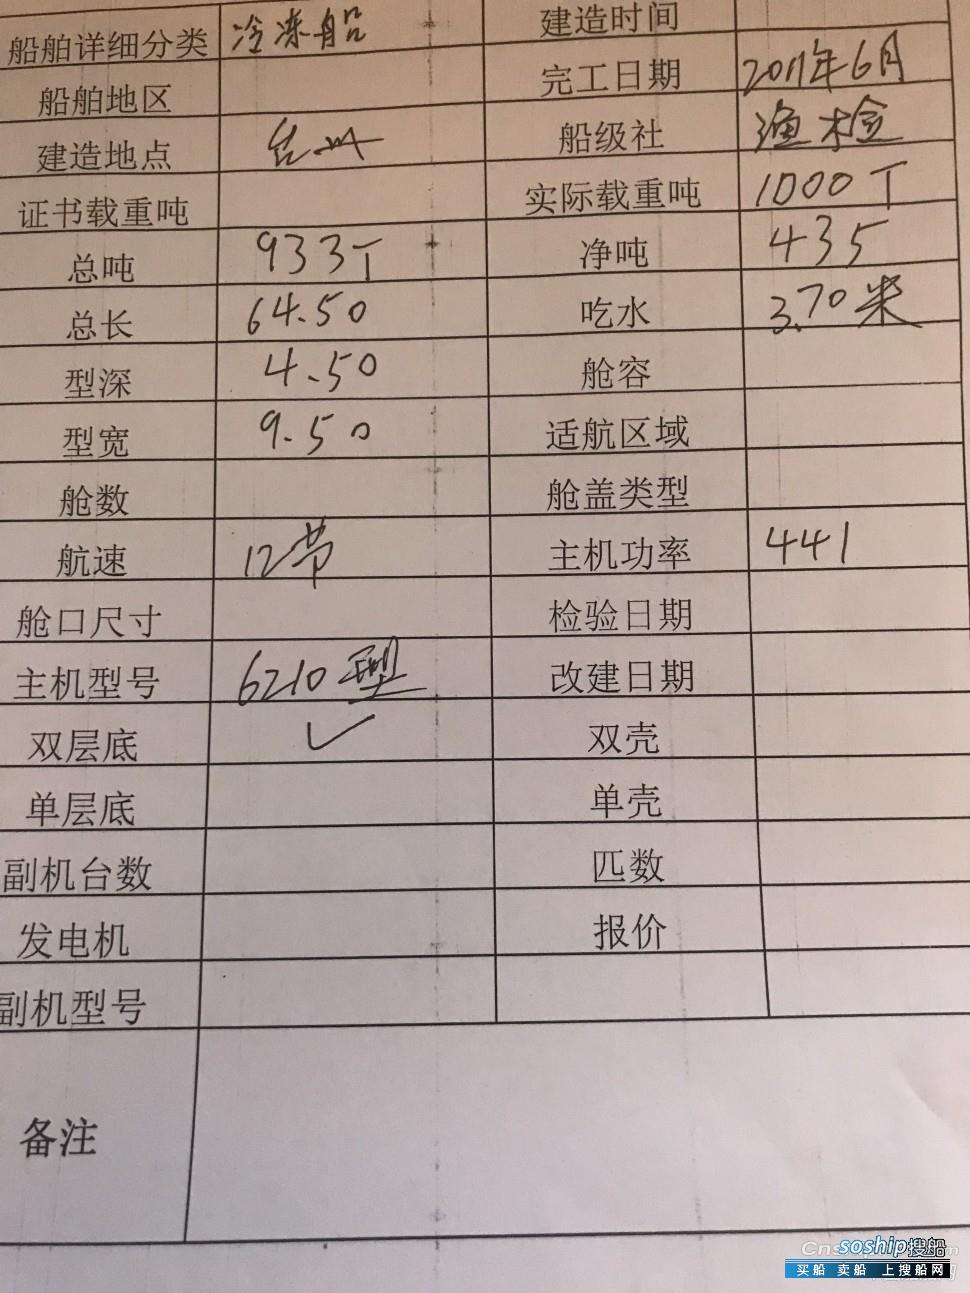 船舶详细分类 冷冻船 建造时间
船舶地区 完工日期 2011年6月
建造地点 台州 船级社 渔检
证书载重吨 实际载重吨 1000T
总吨 933T 净吨 435
总长 64.50 吃水 3.70米
型深 4.50 舱容
型宽 9.50 适航区域
舱数 舱盖类型
航速 12节 主机功率 441
舱口尺寸 检验日期
主机型号 6210型 改建日期
双层底 ✓ 双壳
单层底 单壳
副机台数 匹数
发电机 报价
副机型号
备注
soship搜船
买船 卖船 上搜船网